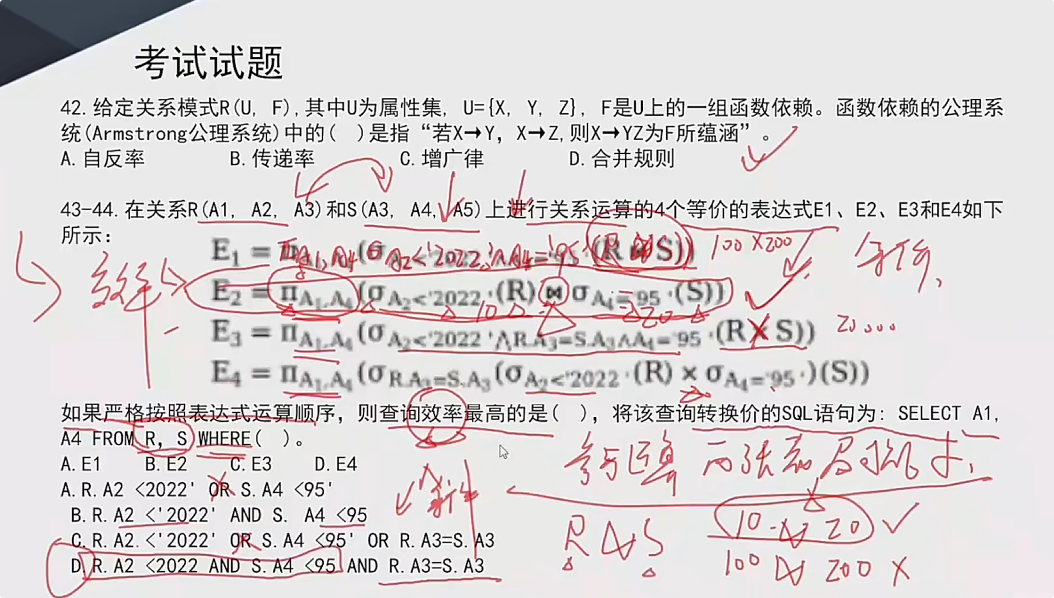 考试试题
42.给定关系模式R(U, F),其中U为属性集, U={X, Y, Z}, F是U上的一组函数依赖。函数依赖的公理系
统(Armstrong公理系统)中的( )是指“若X→Y, X→Z,则X→YZ为F所蕴涵”。
A.自反率 B.传递率 C.增广律 D.合并规则
43-44.在关系R(A1, A2, A3)和S(A3, A4, A5)上进行关系运算的4个等价的表达式E1、E2、E3和E4如下
所示:
E₁ = π_A₁,A₄(σ_A₂<'2022'∧A₄='95'(R ⋈ S))
100 X 200
E₂ = π_A₁,A₄(σ_A₂<'2022'(R) ⋈ σ_A₄='95'(S))
10 20
E₃ = π_A₁,A₄(σ_A₂<'2022'∧R.A₃=S.A₃∧A₄='95'(R × S))
E₄ = π_A₁,A₄(σ_R.A₃=S.A₃(σ_A₂<'2022'(R) × σ_A₄='95')(S))
如果严格按照表达式运算顺序, 则查询效率最高的是( ), 将该查询转换价的SQL语句为: SELECT A1,
A4 FROM R, S WHERE( )。
A.E1 B.E2 C.E3 D.E4
A.R.A2 <2022' OR S.A4 <95'
B.R.A2 <'2022' AND S. A4 <95
C.R.A2.<'2022' OR S.A4 <95' OR R.A3=S.A3
D.R.A2 <2022 AND S.A4 <95 AND R.A3=S.A3
效率
参与运算
R ⋈ S
10 ⋈ 20
100 ⋈ 200 X